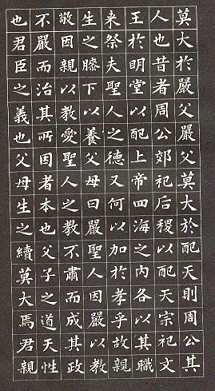 莫大於嚴父嚴父莫大於配天則周公其
人也昔者周公郊祀后稷以配天宗祀文
王於明堂以配上帝四海之內各以其職
來祭夫聖人之德又何以加於孝乎故親
生之膝下以養父母日嚴聖人因嚴以教
敬因親以教愛聖人之教不肅而成其政
不嚴而治其所因者本也父子之道天性
也君臣之義也父母生之續莫大焉君親